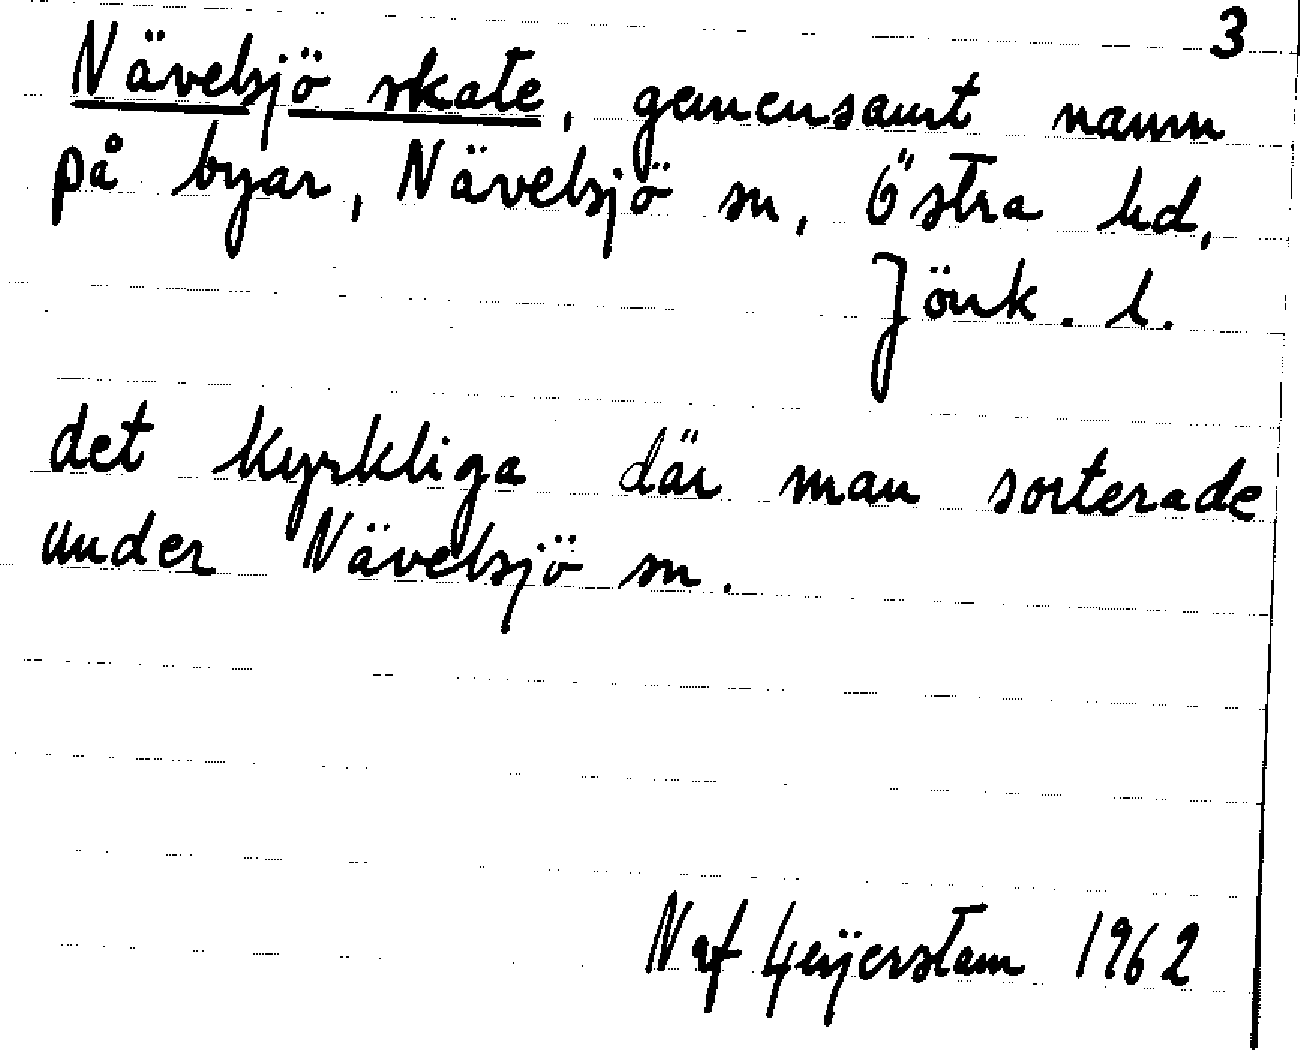 3
Nävelsjö skate, gemensamt namn
på byar, Nävelsjö sn, Östra hd,
Jönk. l.
det kyrkliga där man sorterade
under Nävelsjö sn.
N af Geijerstam 1962